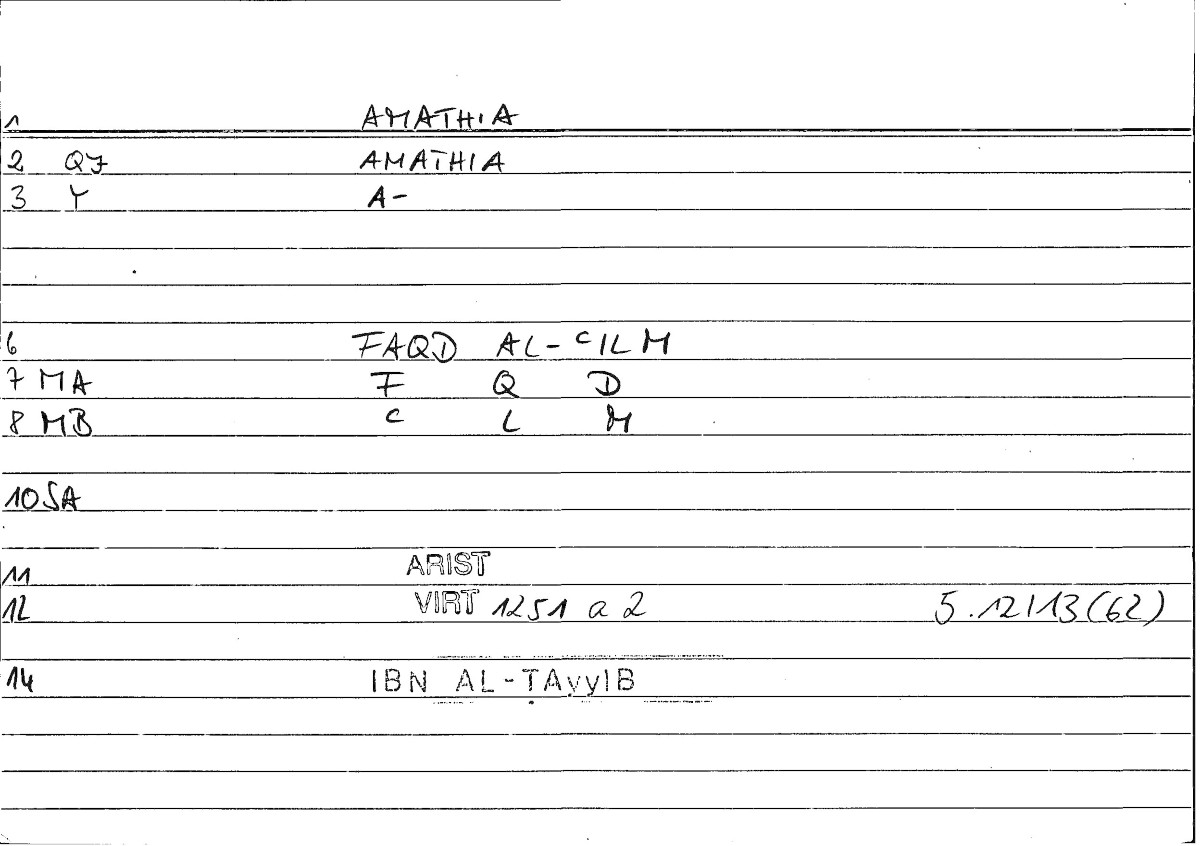 1 AMATHIA
2 QF AMATHIA
3 Y A-
6 FAQD AL-CILM
7 MA F Q D
8 MB C L M
10 SA
11 ARIST
12 VIRT 1251 a 2 5.12/13(62)
14 IBN AL-TAyyIB